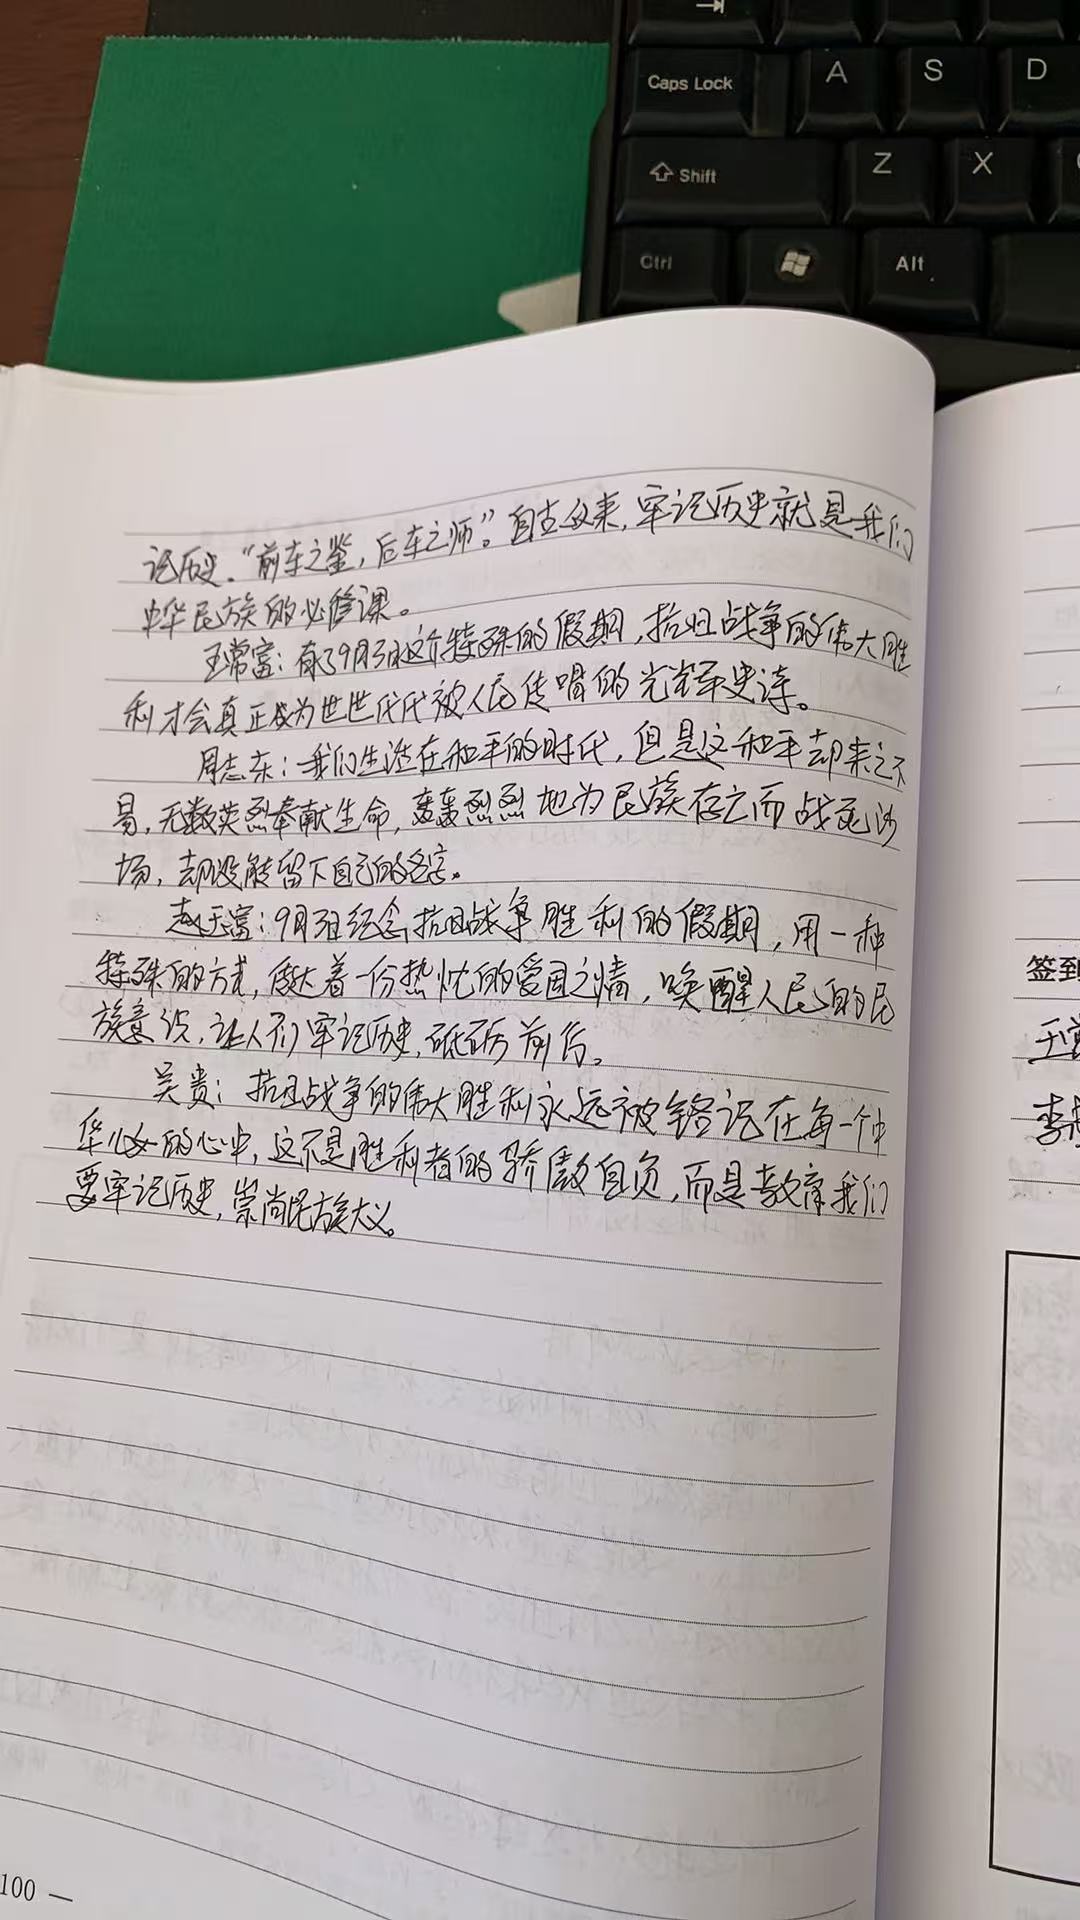 Caps Lock
A
S
D
Shift
Z
X
Ctrl
Alt
记历史。“前车之鉴，后车之师。”自古以来，牢记历史就是我们
中华民族的必修课。
王常富：有了9月3日这个特殊的假期，抗日战争的伟大胜
利才会真正成为世世代代被人民传唱的光辉史诗。
周志东：我们生活在和平的时代，但是这和平却来之不
易，无数英烈奉献生命，轰轰烈烈地为民族存亡而战死沙
场，却没能留下自己的名字。
赵玉富：9月3日纪念抗日战争胜利的假期，用一种
特殊的方式，传达着一份热忱的爱国之情，唤醒人民的民
族意识，让人们牢记历史，砥砺前行。
吴贵：抗日战争的伟大胜利永远被铭记在每一个中
华儿女的心中，这不是胜利者的骄傲自负，而是教育我们
要牢记历史，崇尚民族大义。
签到
王常
李
100 —